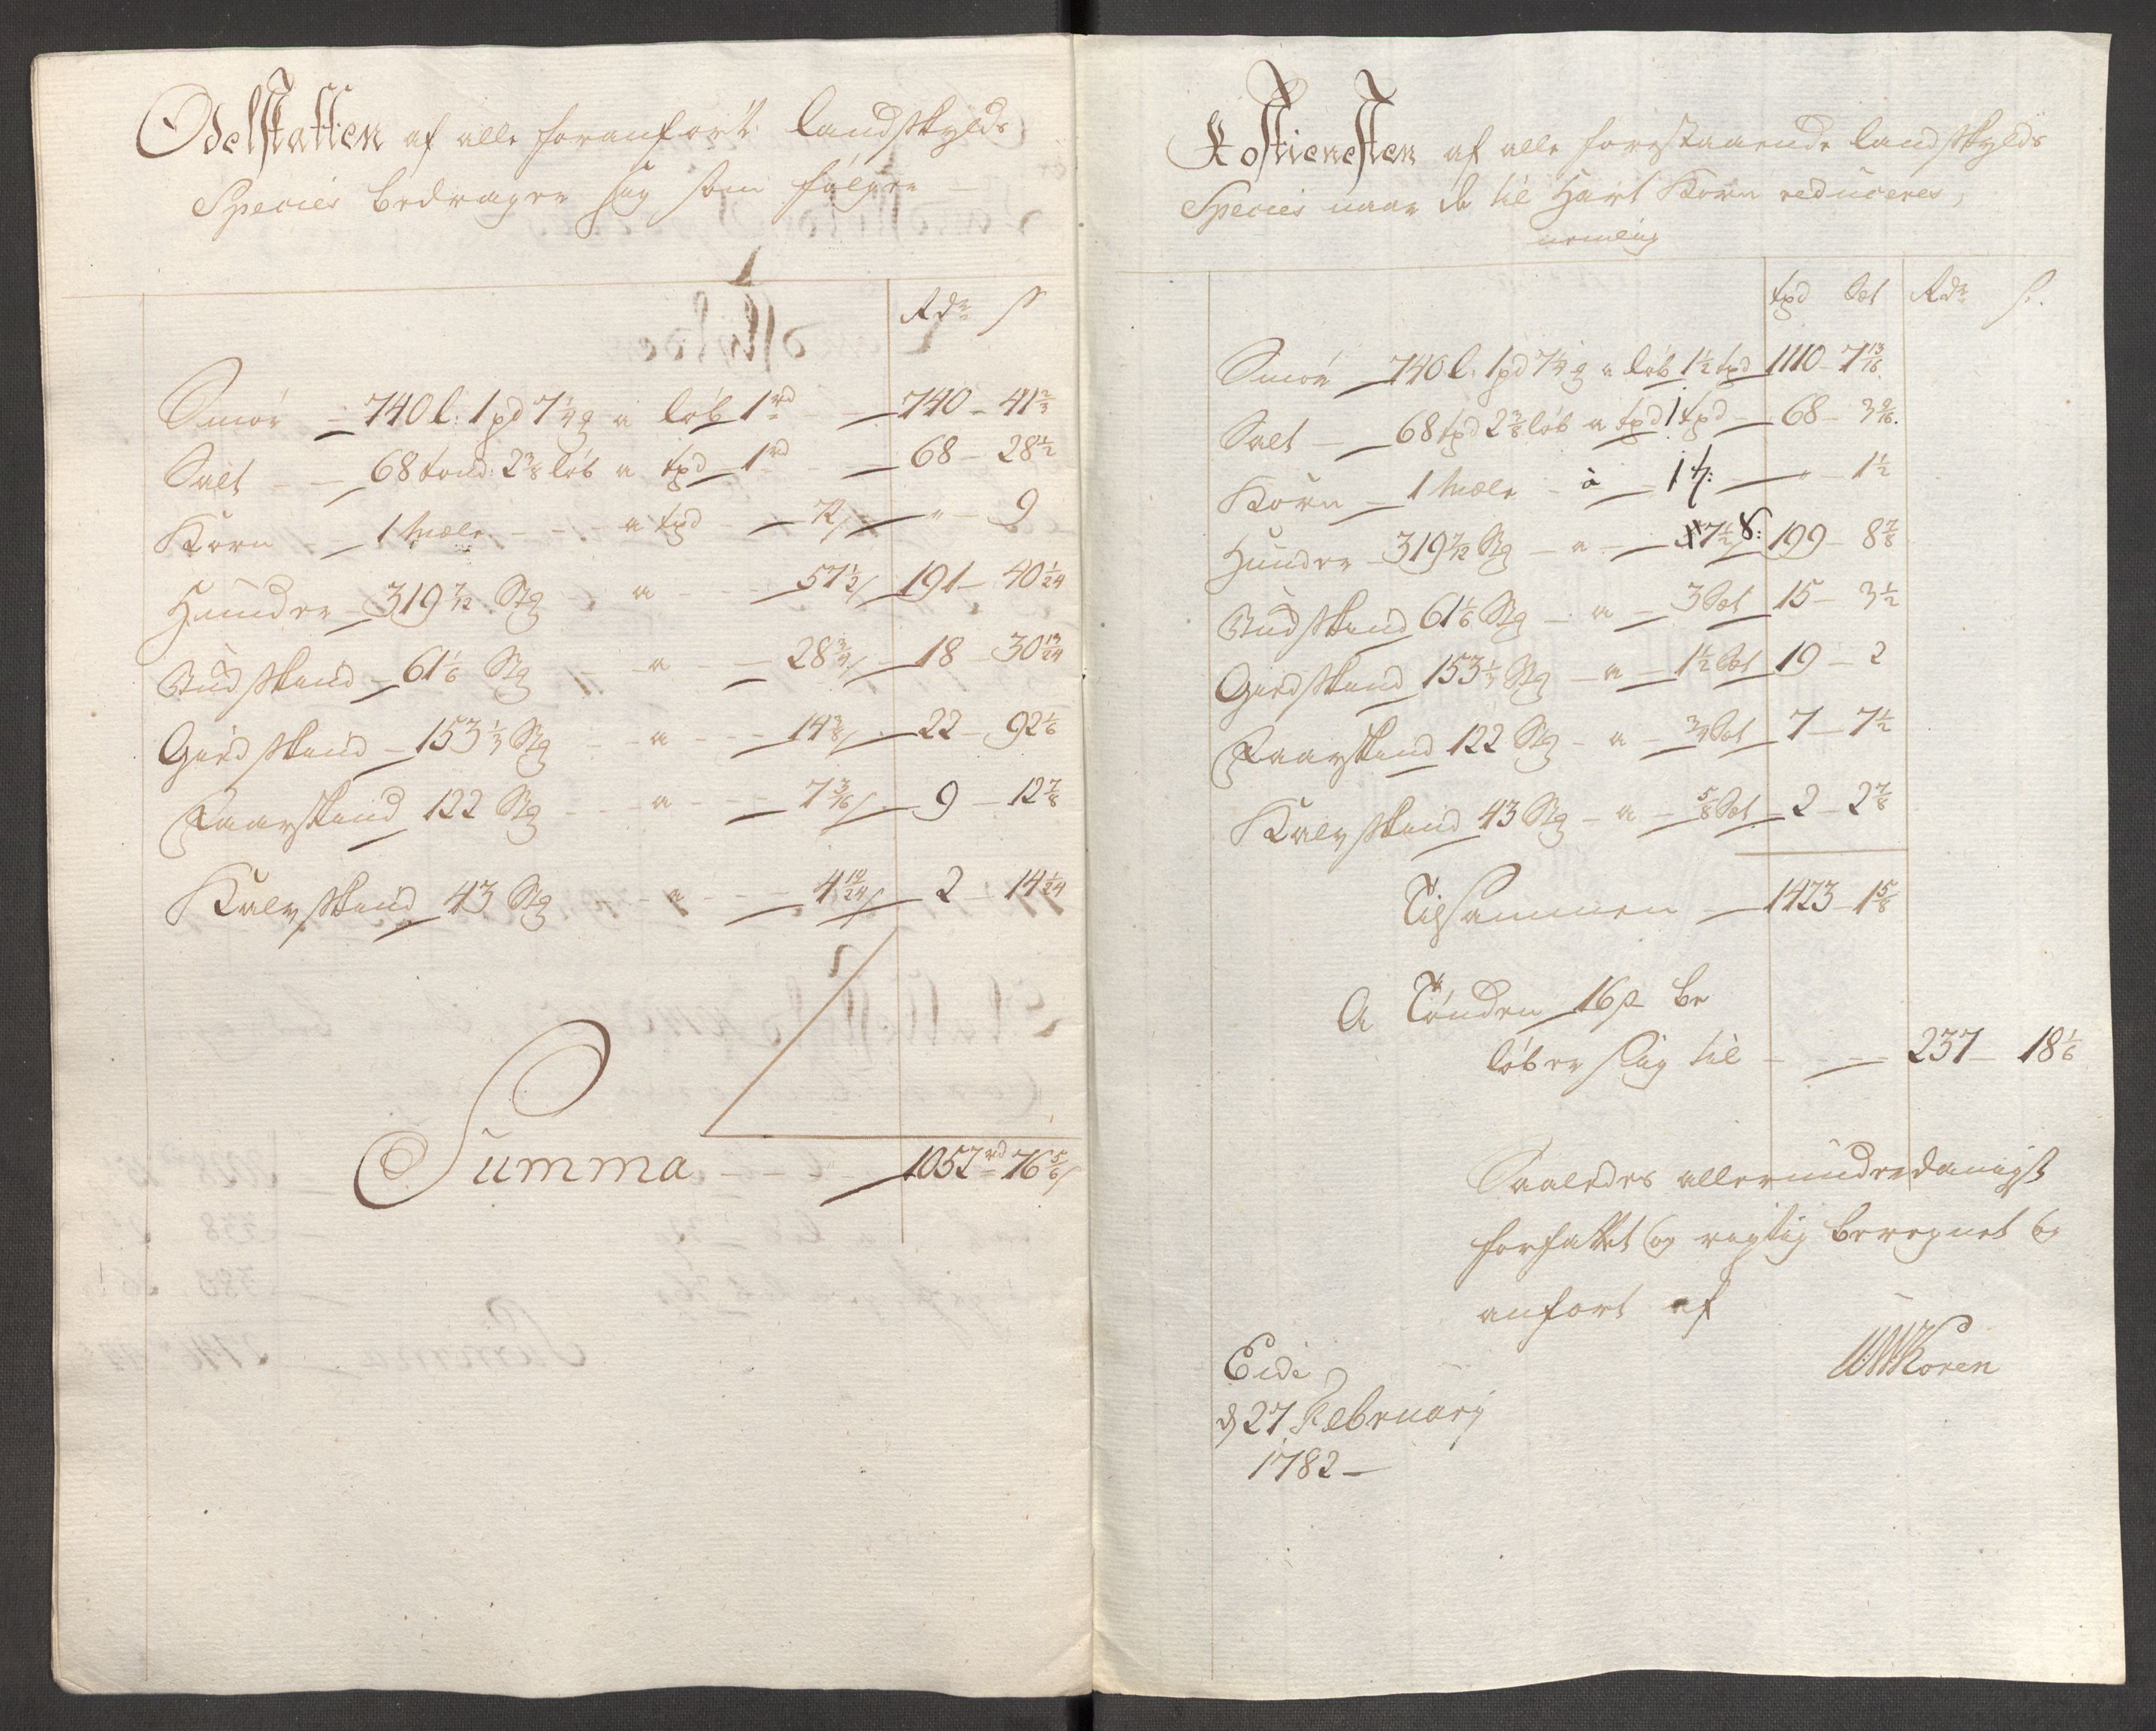 Odelskatten af alle foranfort: Landskylds
Species bedrager sig som følger
Rdr ß
Smör 740 l: 1 pd 7 1/4 g a løb 1 rd 740 41 2/3
Salt 68 tond: 2 3/8 løb a tpd 1 rd 68 28 1/2
Korn 1 Mæle a tpd 72 ß " 9
Huuder 319 7/12 Stg a 57 1/2 ß 191 40 1/24
Budskind 61 1/6 Stg a 28 3/4 ß 18 30 13/24
Giedskind 153 1/3 Stg a 14 3/8 ß 22 92 1/6
Faarskind 122 Stg a 7 3/16 ß 9 12 7/8
Kalvskind 43 Stg a 4 19/24 ß 2 14 1/24
Summa 1052 rd 76 5/6 ß
Rostienesten af alle forestaaende Landskylds
Species naar de til Hart Korn reduceres,
nemlig
tpd Set Rdr ß.
Smör 740 l: 1 pd 7 1/4 g a løb 1 1/2 tpd 1110 7 13/16
Salt 68 tpd 2 3/8 løb a tpd 1 tpd 68 3 9/16.
Korn 1 Mæle à 1 t: " 1 1/2
Huuder 319 7/12 Stg a 7 1/2 S: 199 8 7/8
Budskind 61 1/6 Stg a 3 Set 15 3 1/2
Giedskind 153 1/3 Stg a 1 1/2 Set 19 2
Faarskind 122 Stg a 3/4 Set 7 7 1/2
Kalvskind 43 Stg a 5/8 Set 2 2 7/8
Tilsammen 1423 1 5/8
A Tønden 16 ß be
løber sig til 237 18 1/6
Saaledes allerunderdanigst
forfattet og rigtig beregnet og
anfort af
Eide
d 27 February
1782
Koren